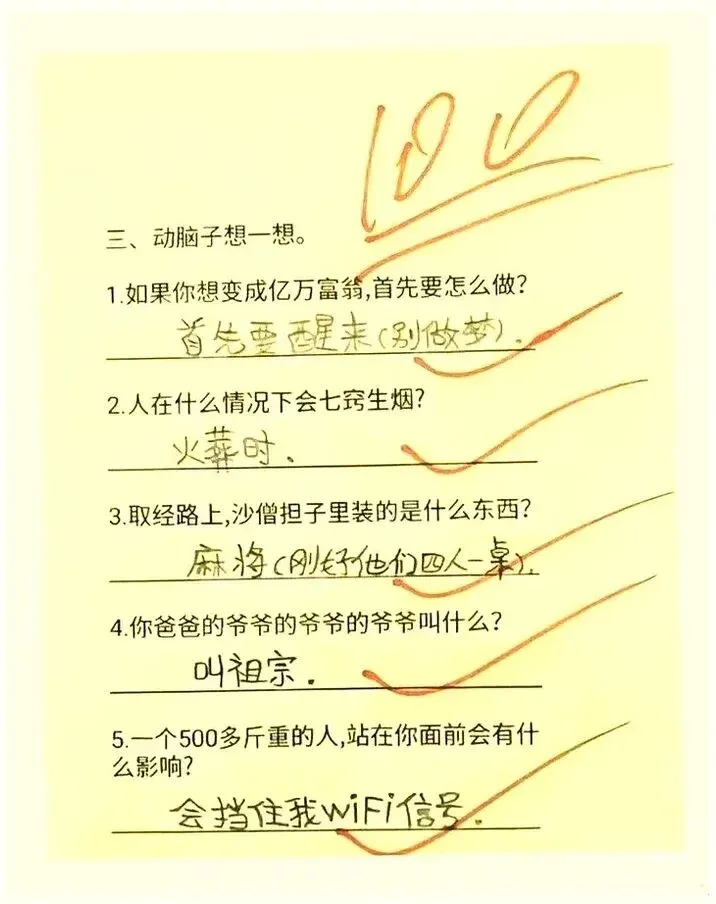 100
三、动脑子想一想。
1.如果你想变成亿万富翁,首先要怎么做?
首先要醒来(别做梦).
2.人在什么情况下会七窍生烟?
火葬时.
3.取经路上,沙僧担子里装的是什么东西?
麻将(刚好他们四人一桌).
4.你爸爸的爷爷的爷爷的爷爷叫什么?
叫祖宗.
5.一个500多斤重的人,站在你面前会有什
么影响?
会挡住我WiFi信号.